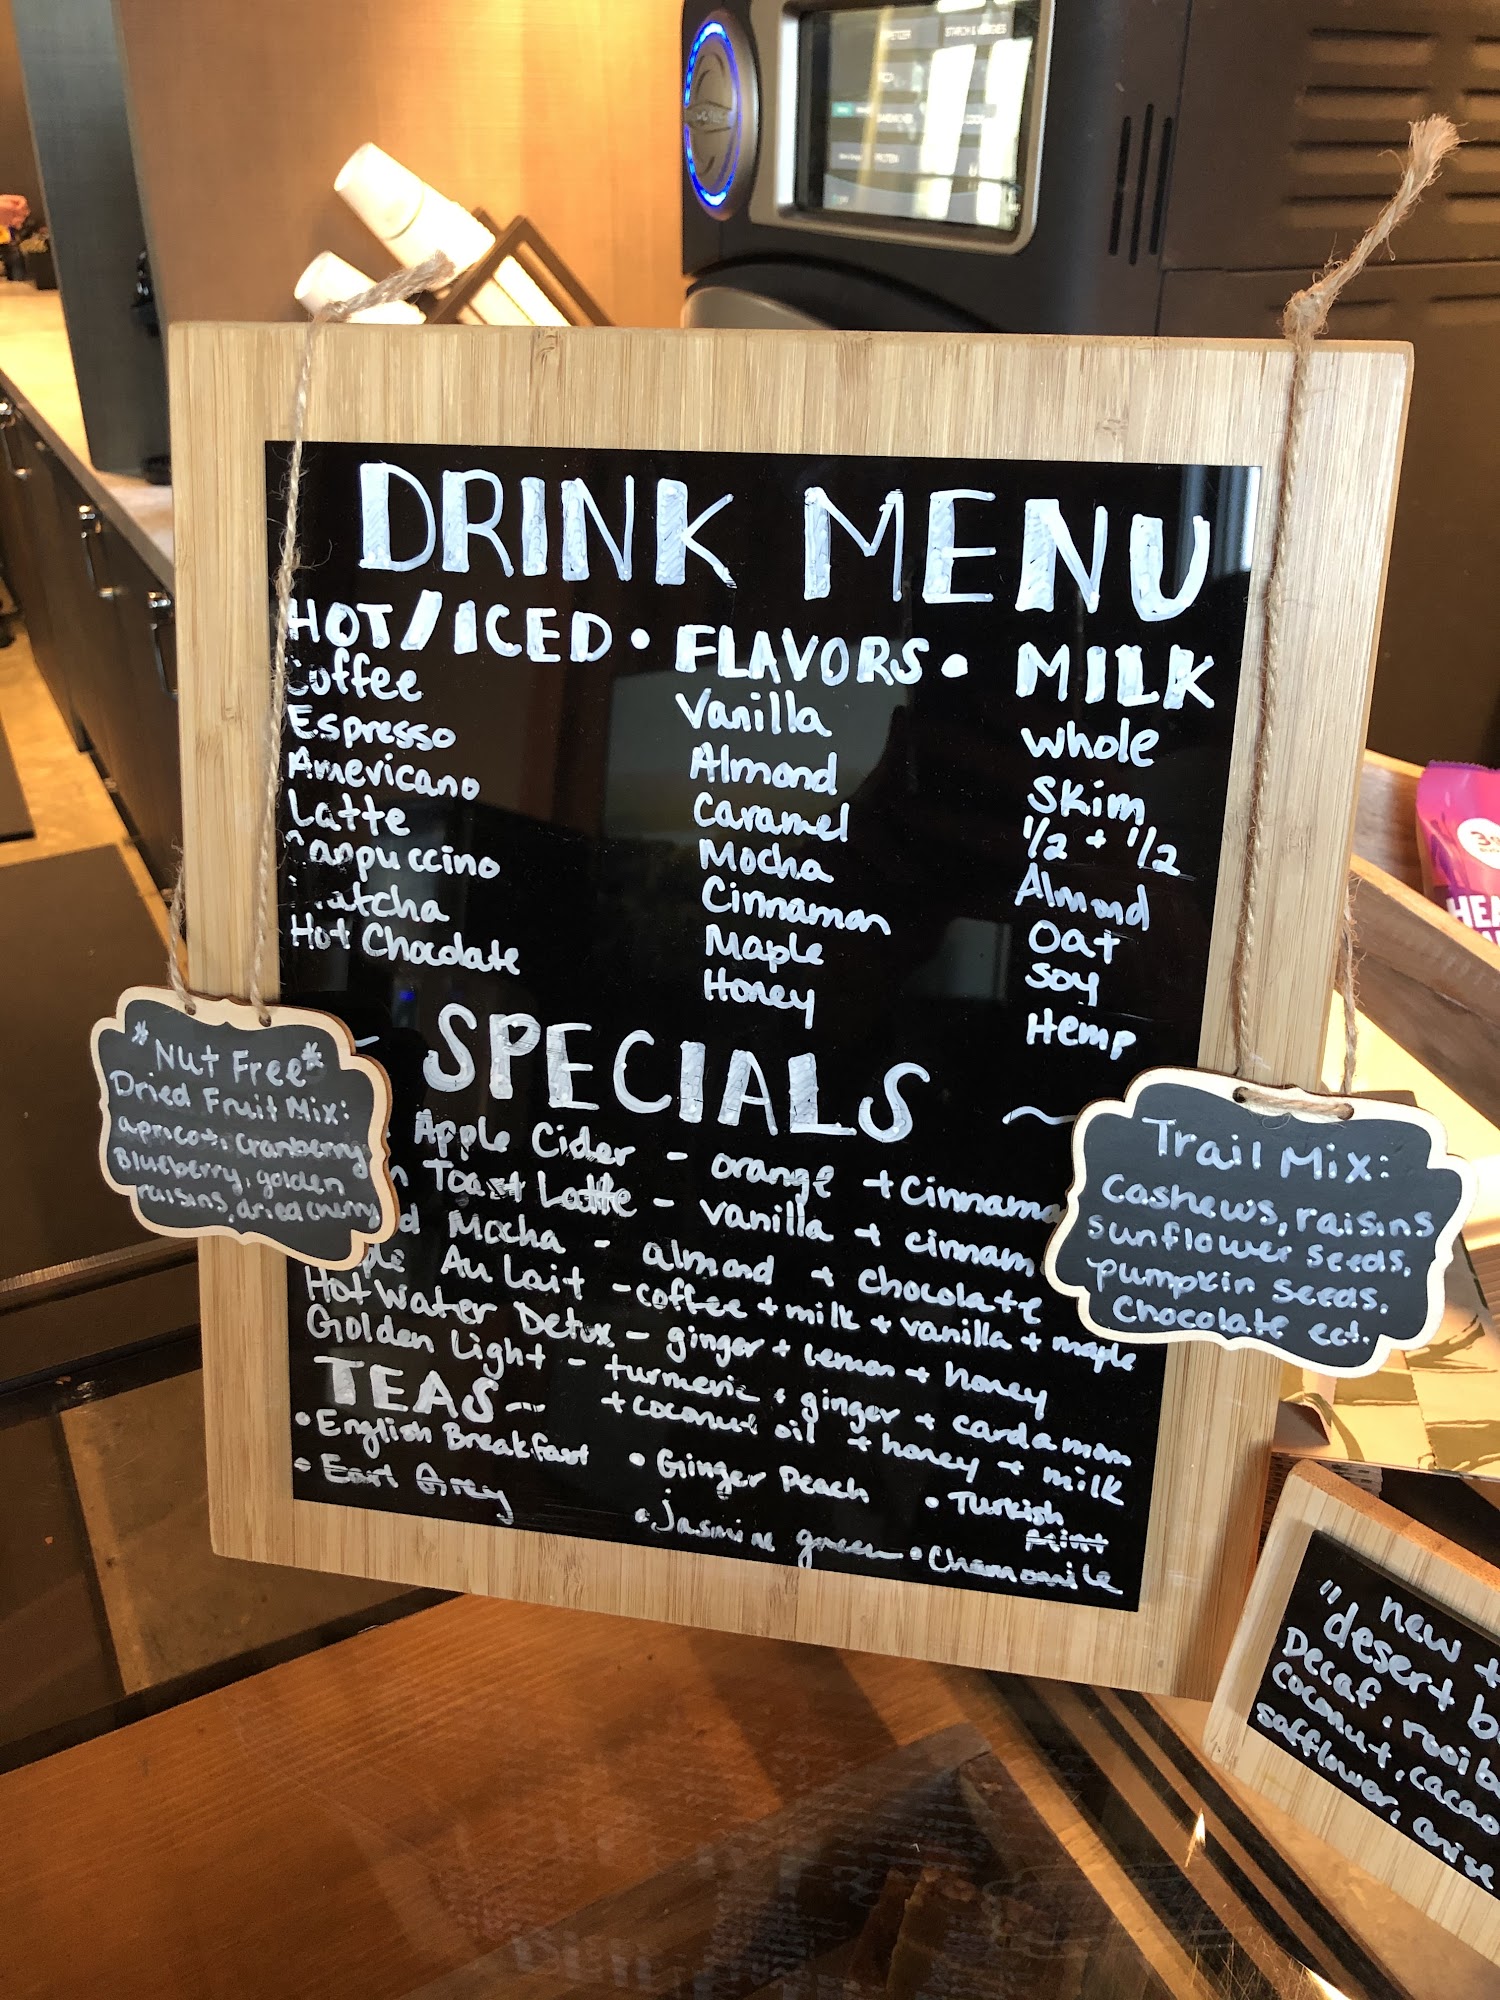 DRINK MENU
HOT/ICED • FLAVORS • MILK
Coffee
Espresso
Americano
Latte
Cappuccino
Matcha
Hot Chocolate
Vanilla
Almond
Caramel
Mocha
Cinnamon
Maple
Honey
Whole
Skim
1/2 + 1/2
Almond
Oat
Soy
Hemp
~ SPECIALS ~
Apple Cider - orange + cinnamo
Toast Latte - vanilla + cinnam
d Mocha - almond + chocolate
Au Lait - coffee + milk + vanilla + maple
Hot Water Detox - ginger + lemon + honey
Golden Light - turmeric + ginger + cardamom
+ coconut oil + honey + milk
TEAS...
• English Breakfast
• Earl Grey
• Ginger Peach
• Jasmine green
• Turkish
Mint
• Chamomile
*Nut Free*
Dried Fruit Mix:
apricot, cranberry
Blueberry, golden
raisins, dried cherry
Trail Mix:
Cashews, raisins
sunflower seeds,
pumpkin seeds,
chocolate ect.
new
"desert
Decaf, rooib
coconut, cacao
safflower, anise
HEA